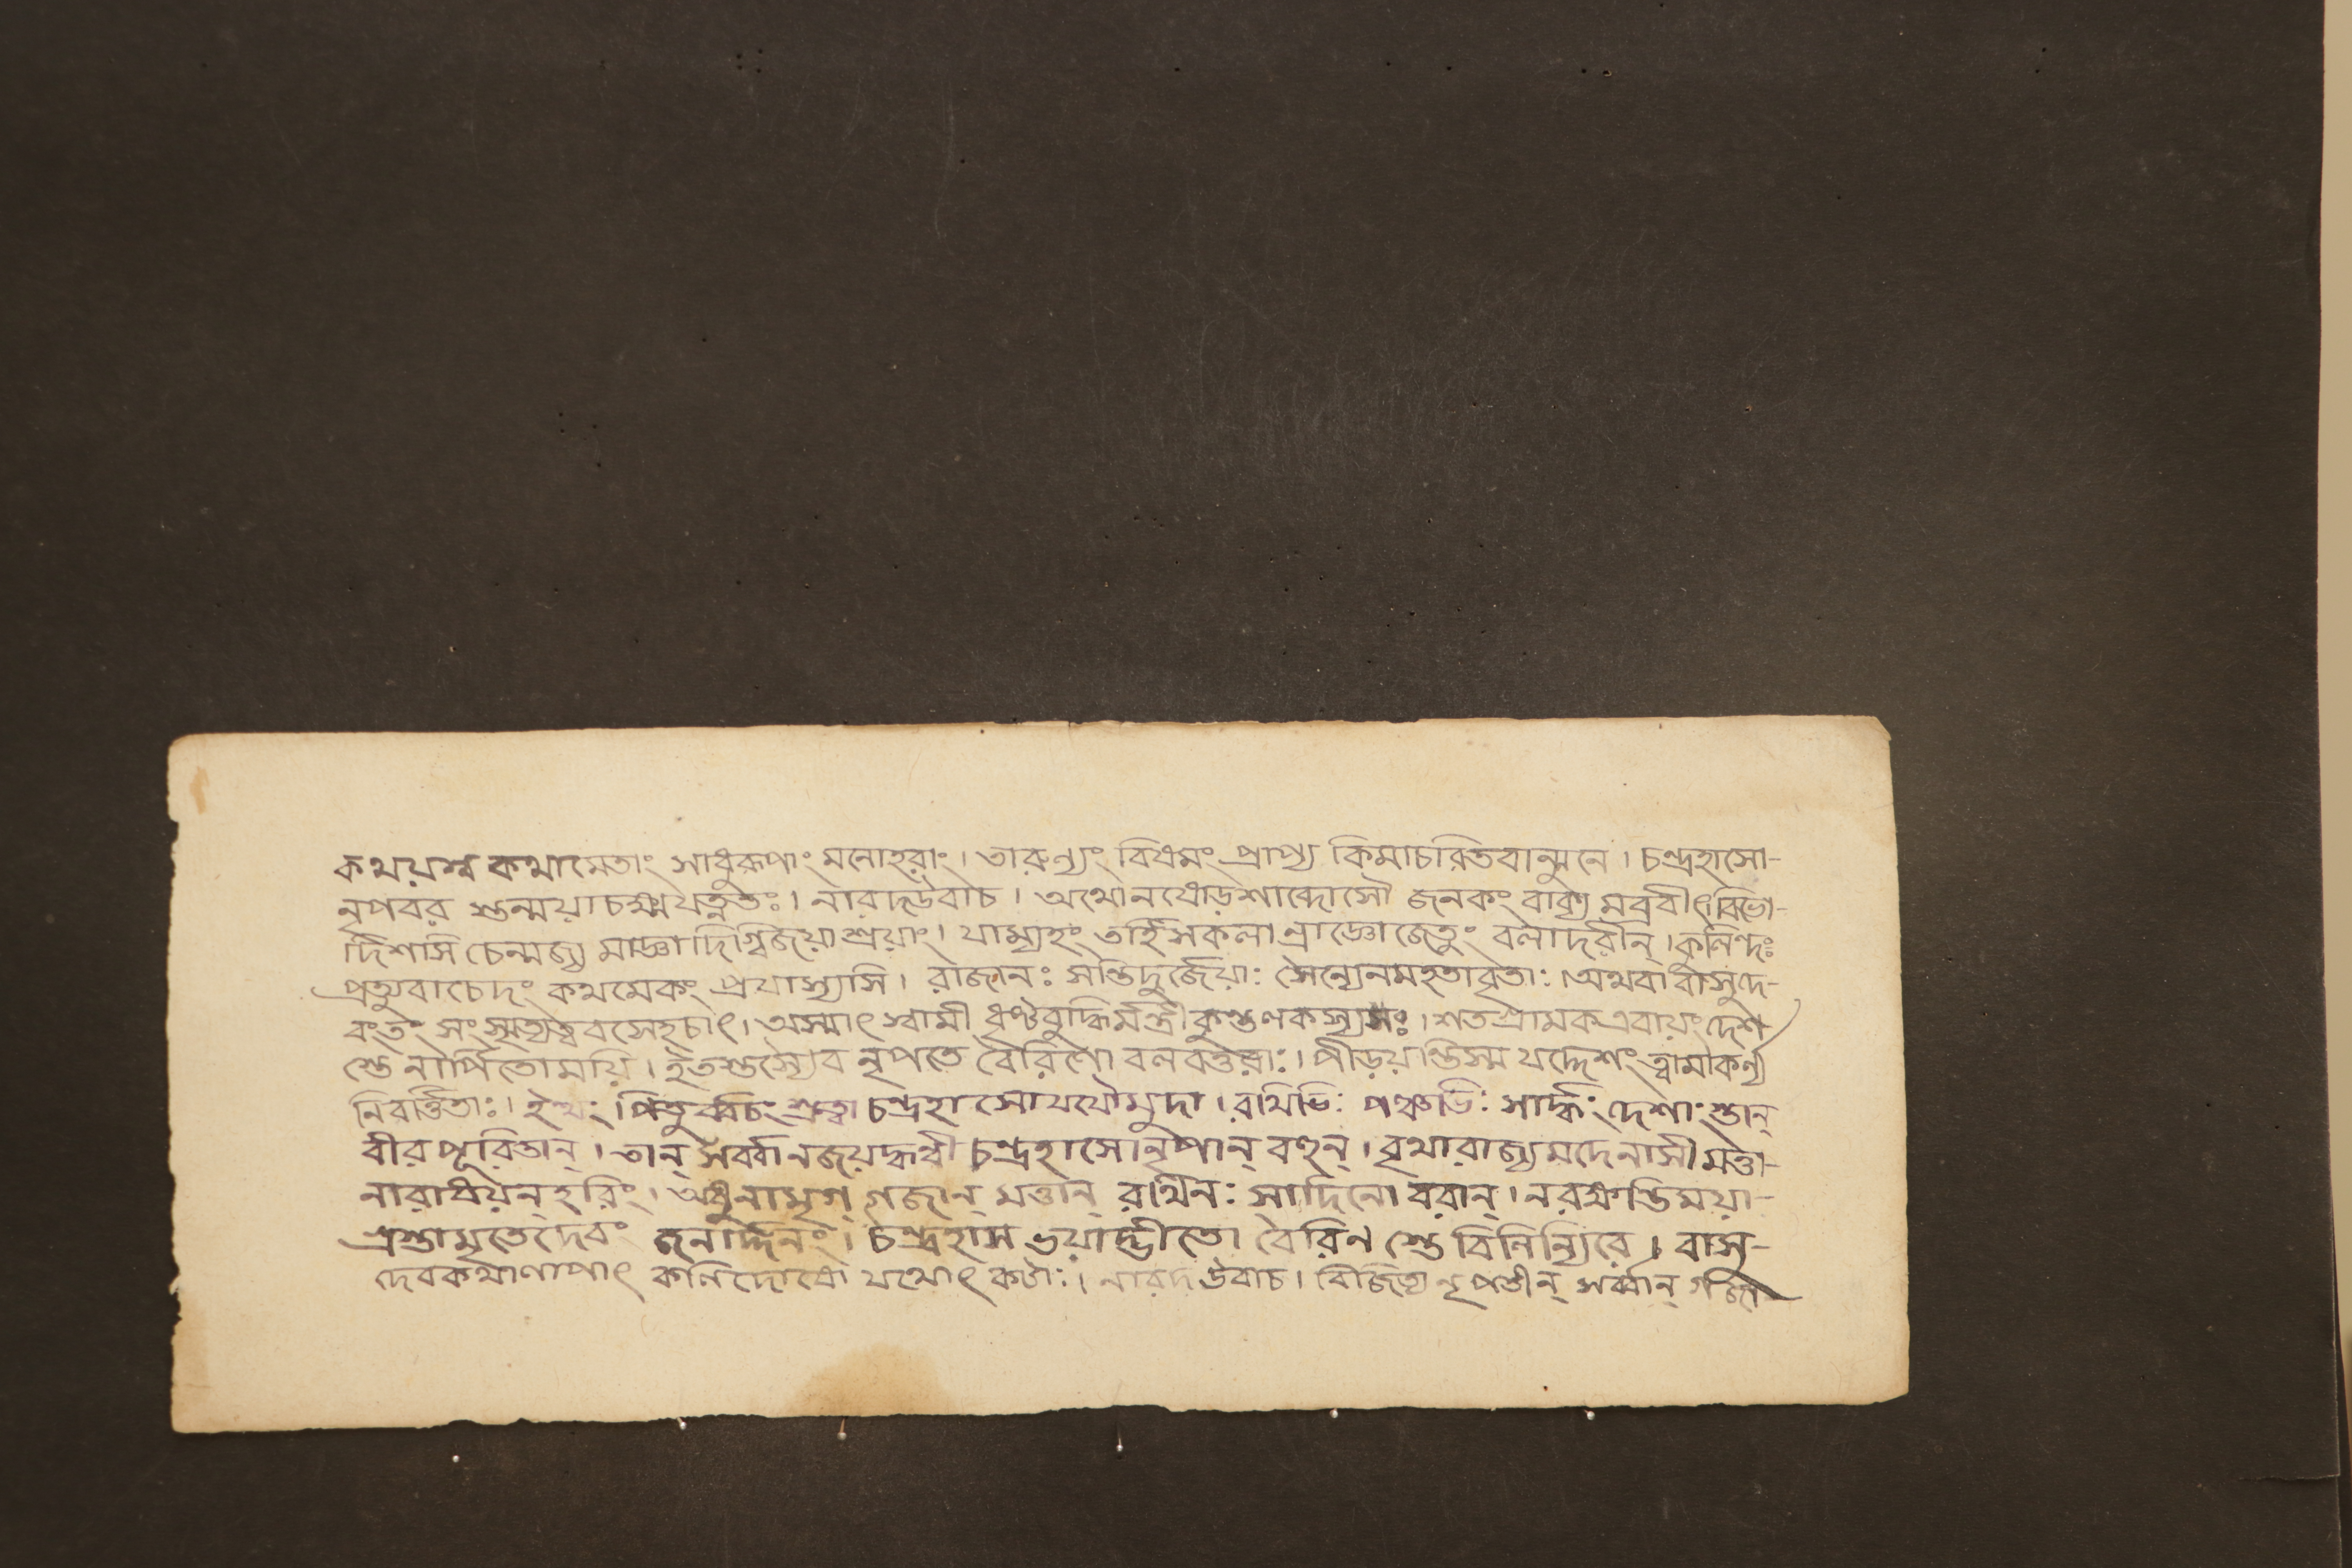 কথয়শ্ব কথামেতাং সাধুরূপাং মনোহরাং। তারুণ্যং বিষমং প্রাপ্য কিমাচরিতবান্মুনে। চন্দ্রহাসো-
নৃপবর শুন্ময়াচক্ষ্ময়ত্নতঃ। নারদউবাচ। অথোনষোড়শাব্দোসৌ জনকং বাক্য মব্রবীৎবিভো-
দিশসি চেন্মজ্য মাজ্ঞাদিগ্বিজয়াশ্রয়াং। যাম্যহং তর্হিসকলান্রাজ্ঞোজেতুং বলাদরীন্। কুলিন্দঃ
প্রত্যুবাচেদং কথমেকং প্রযাস্যসি। রাজানঃ সন্তিদুর্জেয়াঃ সৈন্যেনমহতাবৃতাঃ। অথবাবাসুদে-
বংতং সংস্মৃত্যত্ববসেহচাৎ। অস্মাৎ স্বামী ধৃষ্টবুদ্ধির্মন্ত্রী কুন্তলকস্যসঃ। শতগ্রামকএবায়ং দেশ
স্তেনার্পিতোময়ি। ইতস্তস্যৈব নৃপতে বৈরিণো বলবত্তরাঃ। পীড়য়ন্তিস্ম যদ্দেশং ত্বামাকর্ণ্য
নিবর্ত্তিতাঃ। ইত্থং পিতুর্ব্বচঃ শ্রুত্বা চন্দ্রহাসোযযৌমুদা। রথিভিঃ পঞ্চভিঃ সার্দ্ধং দেশাংস্তান্
বীরপূরিতান্। তান্ সর্ব্বানজয়দ্ধন্বী চন্দ্রহাসোনৃপান্ বহুন্। বৃথারাজ্যমদেনাসীমত্তা-
নারাধয়ন্ হরিং। অধুনামৃগ্ গজান্ মত্তান্ রথিনঃ সাদিনো বরান্। নরকান্তিময়া-
গ্রস্তামৃতেদেবং জনার্দ্দনং। চন্দ্রহাস ভয়াদ্ভীতো বৈরিণ স্তে বিনির্ন্যিরে। বাসু-
দেবকথালাপাৎ কলিদোষো যথোৎকটাঃ। নারদ উবাচ। বিজিত্য নৃপতীন্ সর্ব্বান্ গজা